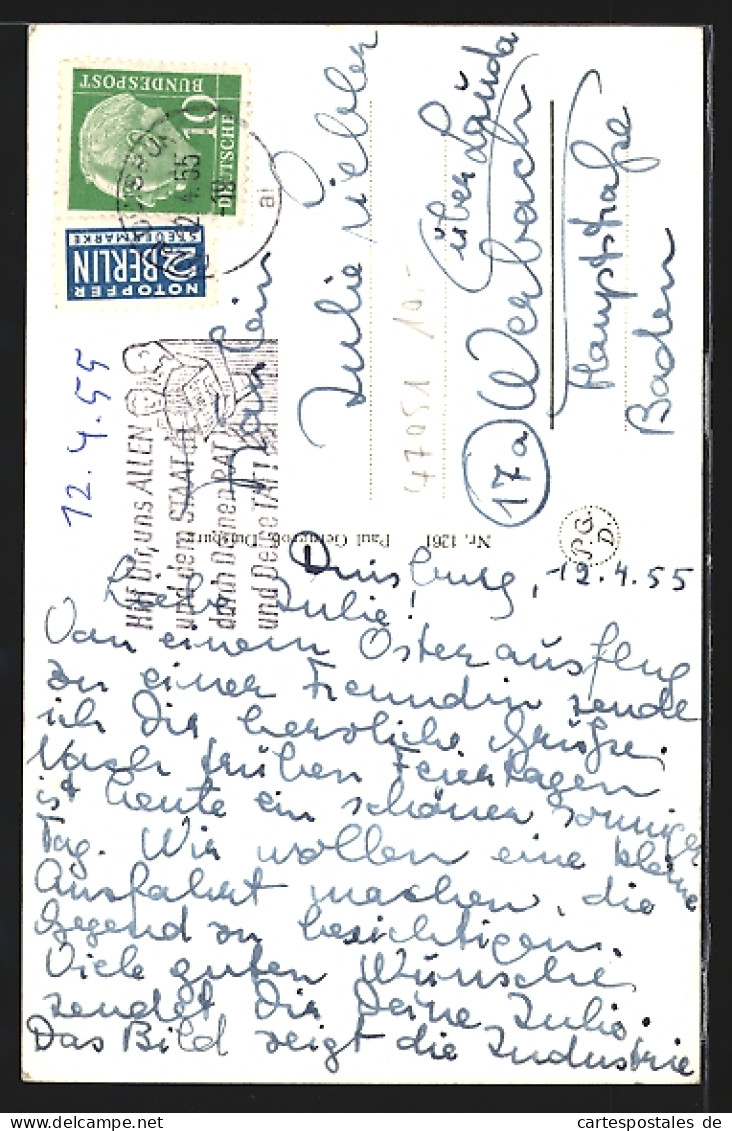 DEUTSCHE
BUNDESPOST
10
12.4.55
NOTOPFER
2 BERLIN
STEUERMARKE
12.4.55
Hilf Dir, uns ALLEN
und dem STAAT
durch Deinen RAT
und Deine TAT!
Fräulein
Julie
47051 10.-
über Lauda
17a Werbach
Hauptstraße
Baden
Nr. 1261
Duisburg
P.G.D.
Duisburg, 12.4.55
Liebe Julie!
Von einem Osterausflug
zu einer Freundin sende
ich Dir herzliche Grüße.
Nach trüben Feiertagen
ist heute ein schöner sonniger
Tag. Wir wollen eine kleine
Ausfahrt machen, die
Gegend zu besichtigen.
Viele guten Wünsche
sendet Dir Deine Julie.
Das Bild zeigt die Industrie
cartespostales de